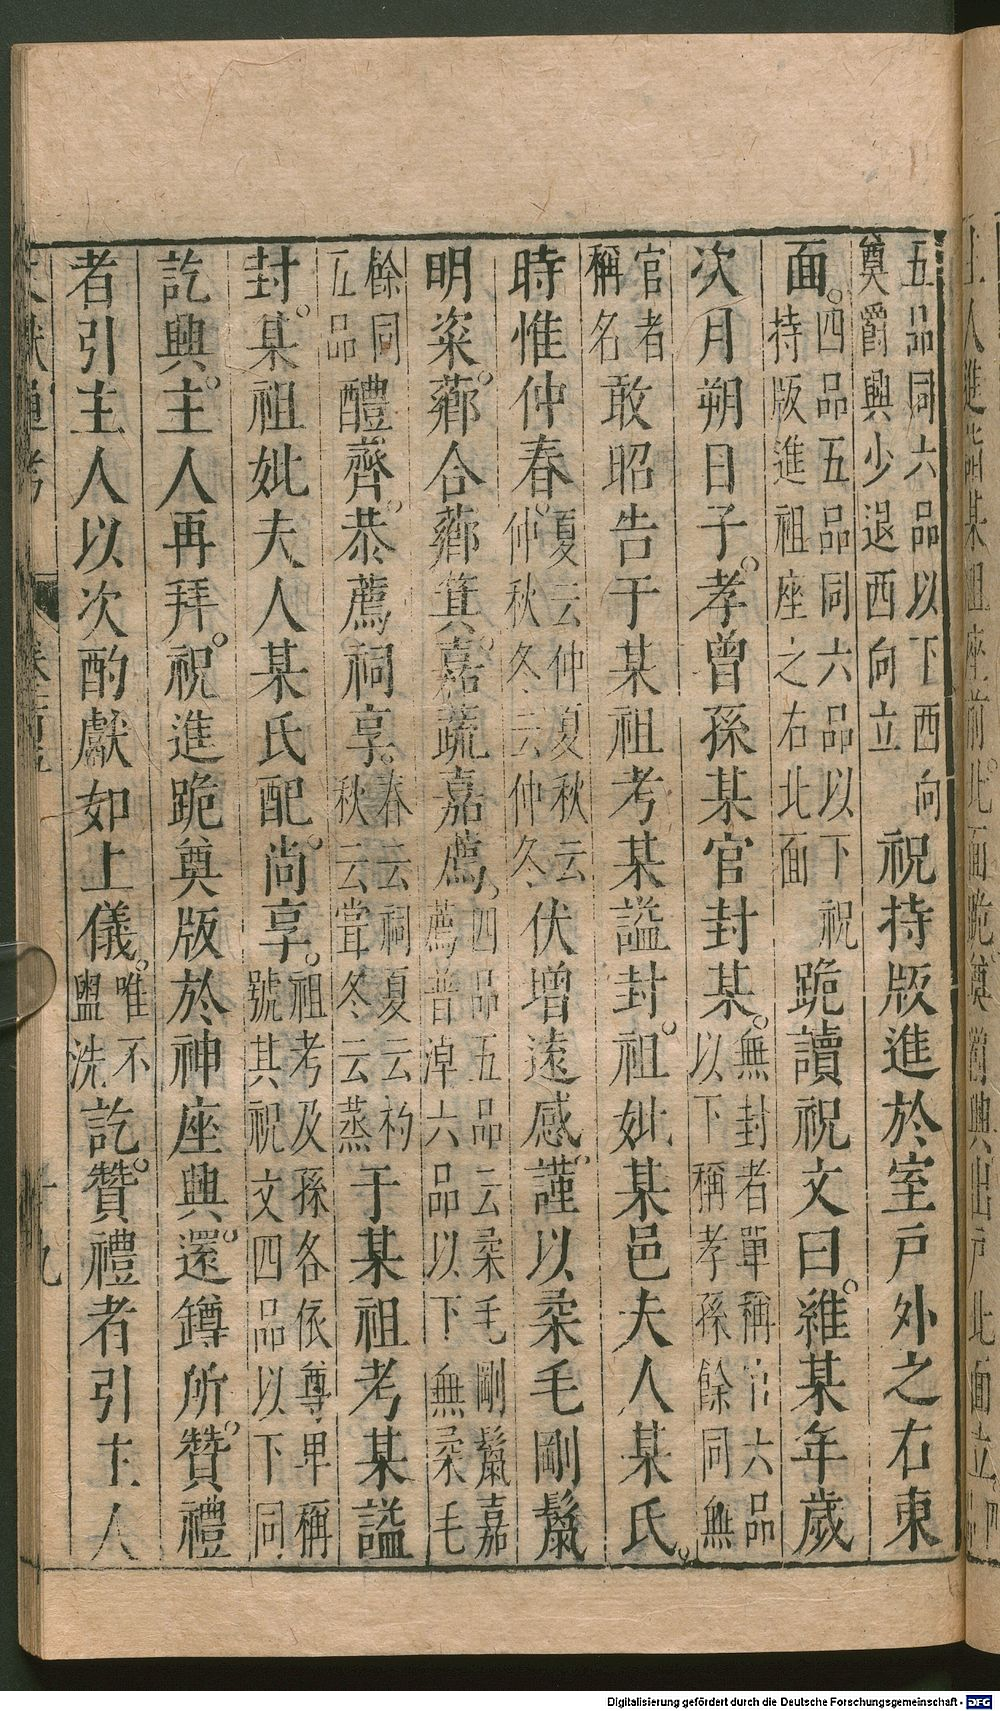 五品同六品以下西向
奠爵興少退西向立
祝持版進於室戶外之右東
面。
四品五品同六品以下祝
持版進祖座之右北面
跪讀祝文曰。維某年歲
次月朔日子。孝曾孫某官封某。
無封者單稱官六品
以下稱孝孫餘同無
官者
稱名
敢昭告于某祖考某謚封。祖妣某邑夫人某氏。
時惟仲春。
夏云仲夏秋云
仲秋冬云仲冬
伏增遠感。謹以柔毛剛鬣
明粢。薌合薌萁。嘉蔬嘉薦。
四品五品云柔毛剛鬣嘉
薦普淖六品以下無柔毛
餘同
五品
醴齊。恭薦祠享。
春云祠夏云礿
秋云甞冬云蒸
于某祖考某謚
封。某祖妣夫人某氏配。尚享。
祖考及孫各依尊卑稱
號其祝文四品以下同
訖興。主人再拜。祝進跪奠版於神座興。還鐏所。贊禮
者引主人以次酌獻如上儀。
唯不
盥洗
訖。贊禮者引主人
十九
Digitalisierung gefördert durch die Deutsche Forschungsgemeinschaft - DFG